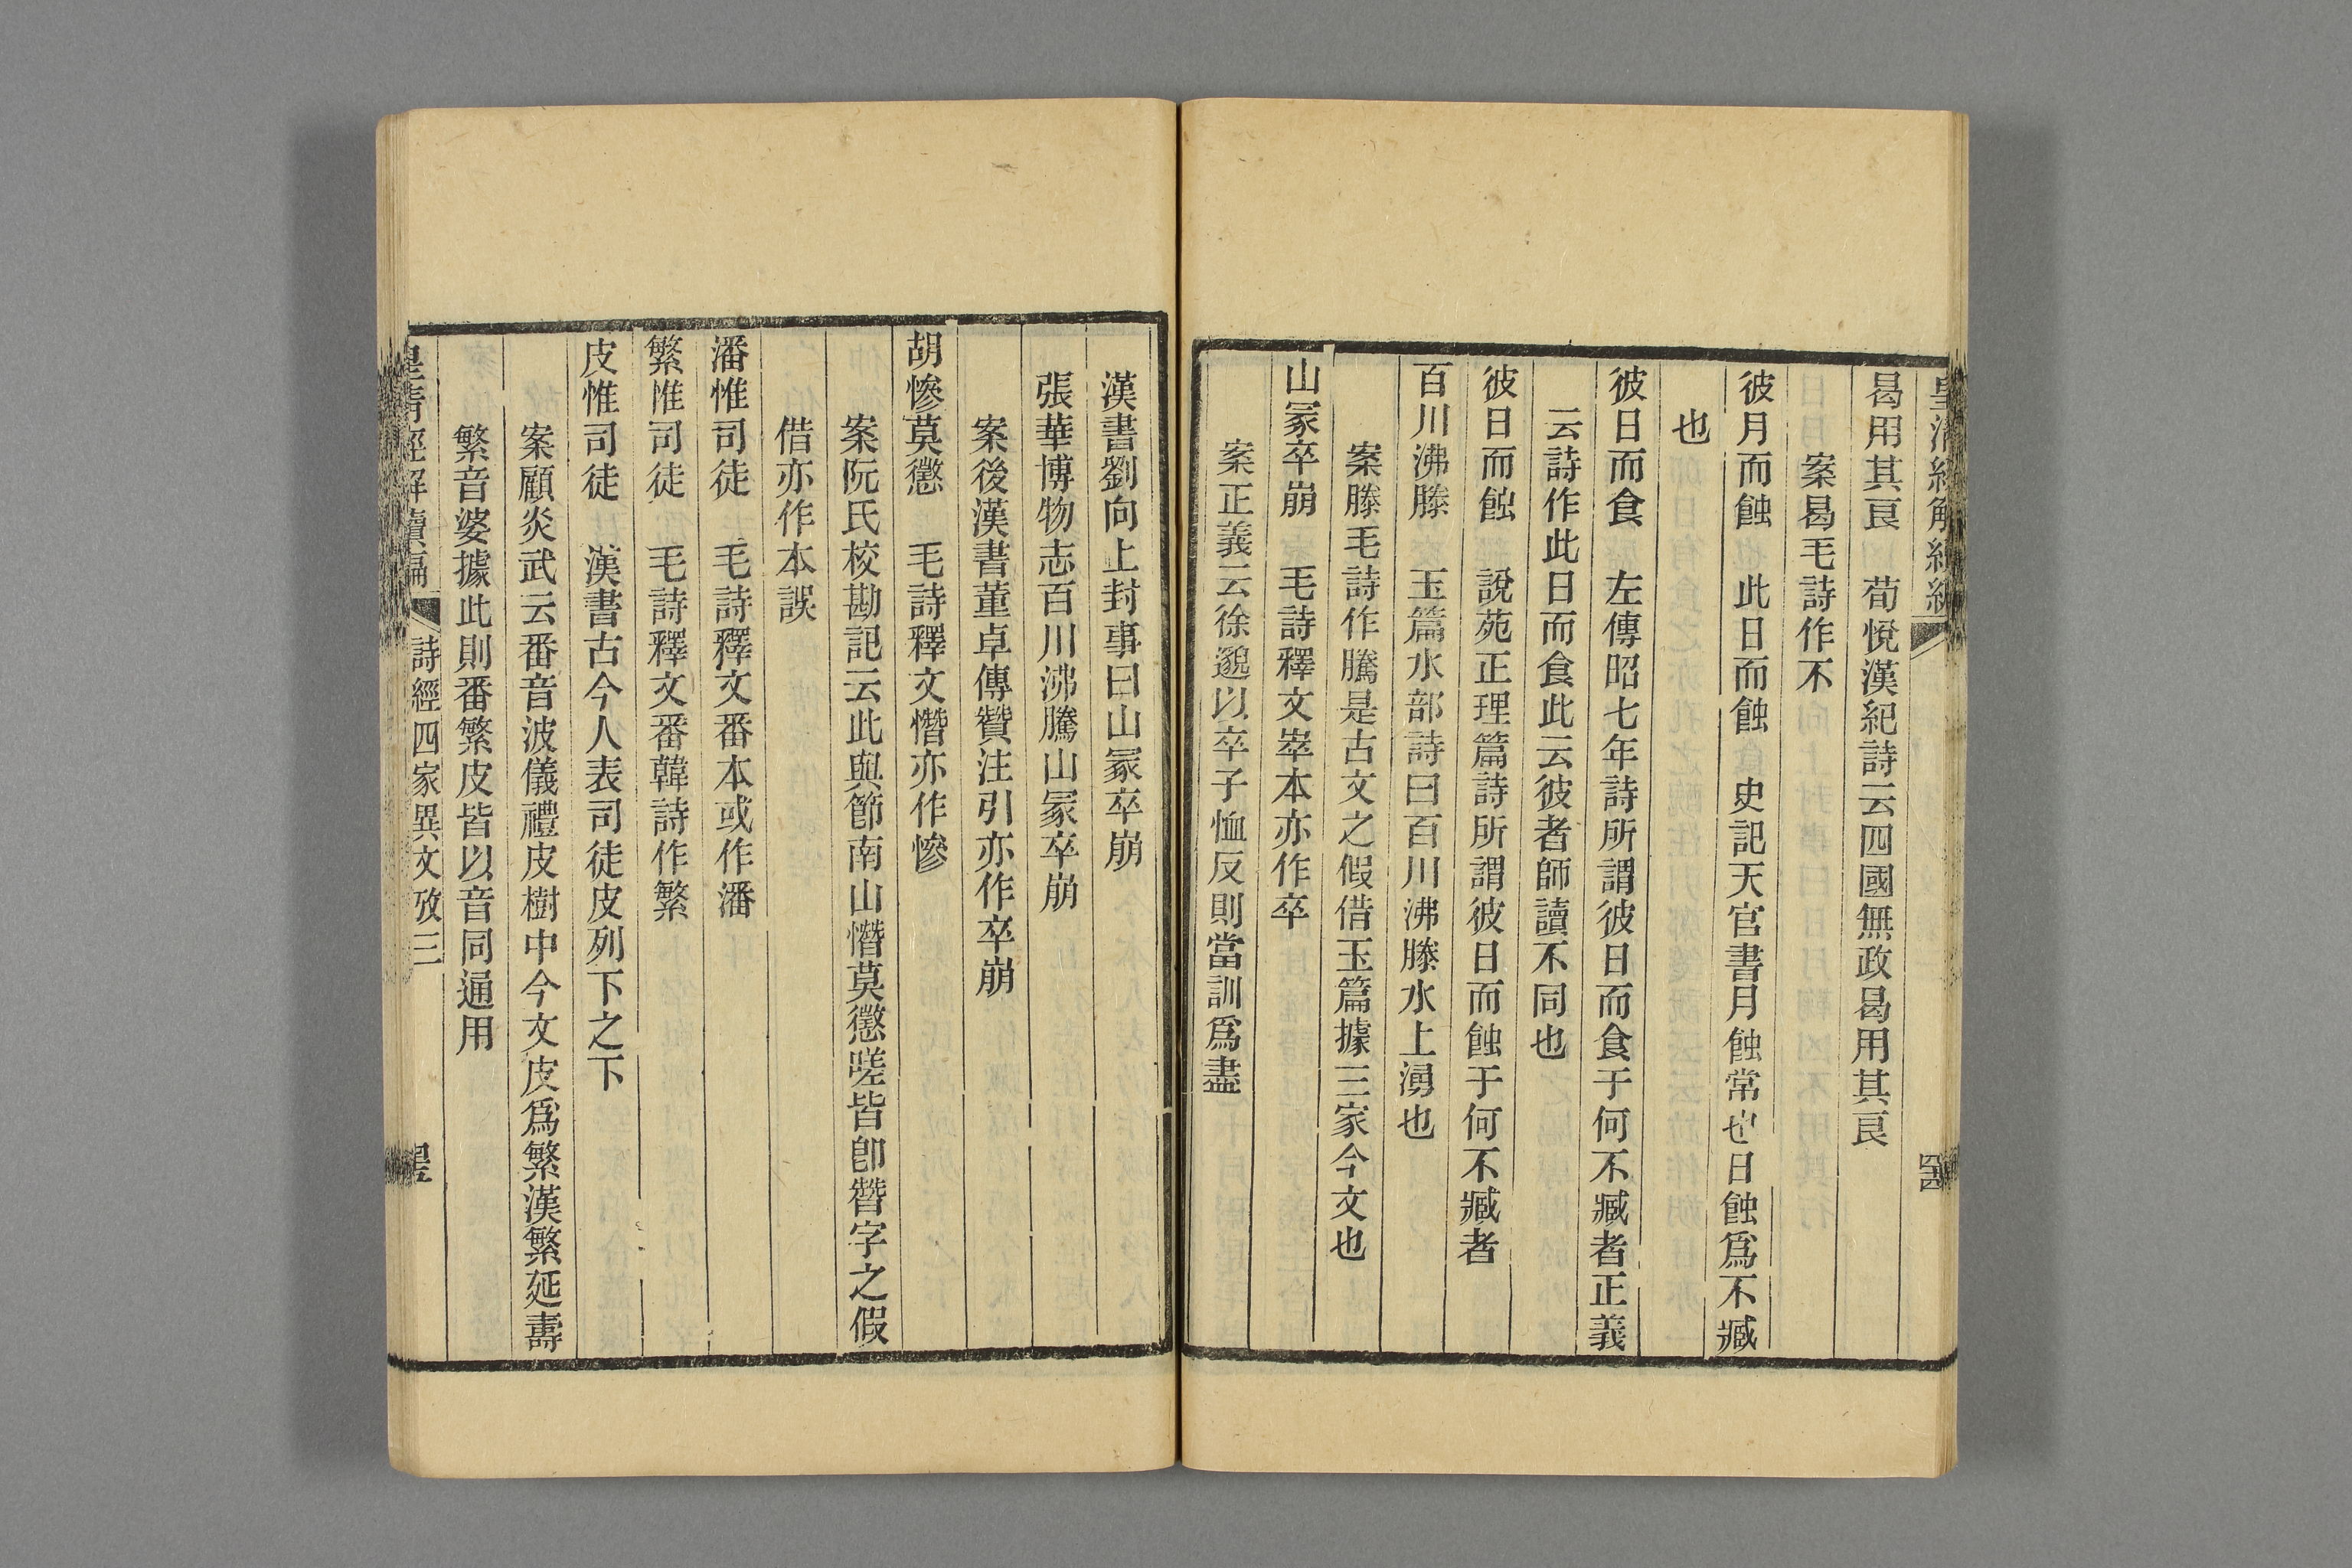 曷用其良　荀悅漢紀詩云四國無政曷用其良
案曷毛詩作不
彼月而蝕　此日而蝕　史記天官書月蝕常也日蝕爲不臧
也
彼日而食　左傳昭七年詩所謂彼日而食于何不臧者正義
云詩作此日而食此云彼者師讀不同也
彼日而蝕　說苑正理篇詩所謂彼日而蝕于何不臧者
百川沸滕　玉篇水部詩曰百川沸滕水上湧也
案滕毛詩作騰是古文之假借玉篇據三家今文也
山冢卒崩　毛詩釋文崒本亦作卒
案正義云徐邈以卒子恤反則當訓爲盡
漢書劉向上封事曰山冢卒崩
張華博物志百川沸騰山冢卒崩
案後漢書董卓傳贊注引亦作卒崩
胡慘莫懲　毛詩釋文憯亦作慘
案阮氏校勘記云此與節南山憯莫懲嗟皆卽朁字之假
借亦作本誤
潘惟司徒　毛詩釋文番本或作潘
繁惟司徒　毛詩釋文番韓詩作繁
皮惟司徒　漢書古今人表司徒皮列下之下
案顧炎武云番音波儀禮皮樹中今文皮爲繁漢繁延壽
繁音婆據此則番繁皮皆以音同通用
皇清經解續編　詩經四家異文攷三